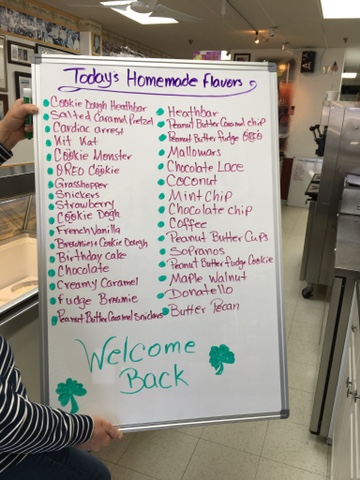 Today's Homemade Flavors
Cookie Dough Heathbar
Salted Caramel Pretzel
Cardiac arrest
Kit Kat
Cookie Monster
OREO Cookie
Grasshopper
Snickers
Strawberry
Cookie Dogh
French Vanilla
Brownie & Cookie Dough
Birthday cake
Chocolate
Creamy Caramel
Fudge Brownie
Peanut Butter Caramel snickers
Heathbar
Peanut Butter Caramel chip
Peanut Butter fudge OREO
Mallomars
Chocolate Lace
Coconut
Mint Chip
Chocolate chip
Coffee
Peanut Butter Cups
Sopranos
Peanut Butter fudge Cookie
Maple Walnut
Donatello
Butter Pecan
Welcome
Back